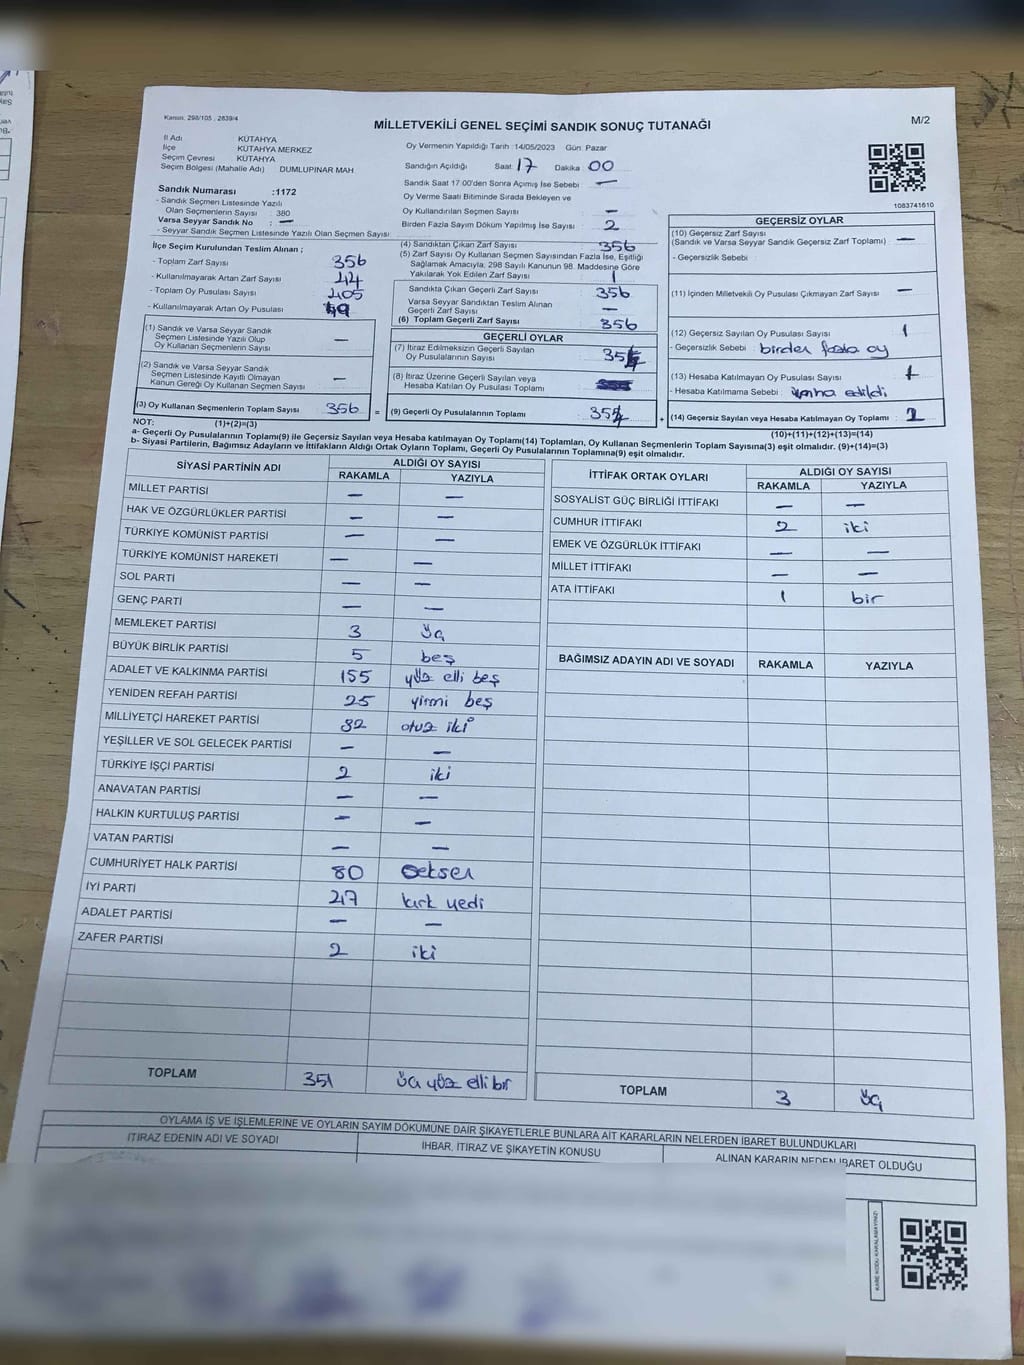 Kanun, 298/105 , 2839/4
M/2
MİLLETVEKİLİ GENEL SEÇİMİ SANDIK SONUÇ TUTANAĞI
İl Adı KÜTAHYA
İlçe KÜTAHYA MERKEZ
Seçim Çevresi KÜTAHYA
Seçim Bölgesi (Mahalle Adı) DUMLUPINAR MAH
Sandık Numarası :1172
- Sandık Seçmen Listesinde Yazılı
Olan Seçmenlerin Sayısı : 380
Varsa Seyyar Sandık No : —
- Seyyar Sandık Seçmen Listesinde Yazılı Olan Seçmen Sayısı:
Oy Vermenin Yapıldığı Tarih :14/05/2023 Gün: Pazar
Sandığın Açıldığı Saat: 17 Dakika: 00
Sandık Saat 17.00'den Sonra Açımış İse Sebebi —
Oy Verme Saati Bitiminde Sırada Bekleyen ve
Oy Kullandırılan Seçmen Sayısı —
Birden Fazla Sayım Döküm Yapılmış İse Sayısı 2
1083741610
İlçe Seçim Kurulundan Teslim Alınan ;
- Toplam Zarf Sayısı 356
- Kullanılmayarak Artan Zarf Sayısı 44
- Toplam Oy Pusulası Sayısı 405
- Kullanılmayarak Artan Oy Pusulası 49
(1) Sandık ve Varsa Seyyar Sandık
Seçmen Listesinde Yazılı Olup
Oy Kullanan Seçmenlerin Sayısı —
(2) Sandık ve Varsa Seyyar Sandık
Seçmen Listesinde Kayıtlı Olmayan
Kanun Gereği Oy Kullanan Seçmen Sayısı —
(3) Oy Kullanan Seçmenlerin Toplam Sayısı 356 =
(1)+(2)=(3)
(4) Sandıktan Çıkan Zarf Sayısı 356
(5) Zarf Sayısı Oy Kullanan Seçmen Sayısından Fazla İse, Eşitliği
Sağlamak Amacıyla, 298 Sayılı Kanunun 98. Maddesine Göre
Yakılarak Yok Edilen Zarf Sayısı 1
Sandıkta Çıkan Geçerli Zarf Sayısı 356
Varsa Seyyar Sandıktan Teslim Alınan
Geçerli Zarf Sayısı —
(6) Toplam Geçerli Zarf Sayısı 356
GEÇERLİ OYLAR
(7) İtiraz Edilmeksizin Geçerli Sayılan
Oy Pusulalarının Sayısı 354
(8) İtiraz Üzerine Geçerli Sayılan veya
Hesaba Katılan Oy Pusulası Toplamı
(9) Geçerli Oy Pusulalarının Toplamı 354 +
GEÇERSİZ OYLAR
(10) Geçersiz Zarf Sayısı
(Sandık ve Varsa Seyyar Sandık Geçersiz Zarf Toplamı) —
- Geçersizlik Sebebi
(11) İçinden Milletvekili Oy Pusulası Çıkmayan Zarf Sayısı —
(12) Geçersiz Sayılan Oy Pusulası Sayısı 1
- Geçersizlik Sebebi : birden fazla oy
(13) Hesaba Katılmayan Oy Pusulası Sayısı 1
- Hesaba Katılmama Sebebi : imha edildi
(14) Geçersiz Sayılan veya Hesaba Katılmayan Oy Toplamı 2
(10)+(11)+(12)+(13)=(14)
NOT:
a- Geçerli Oy Pusulalarının Toplamı(9) ile Geçersiz Sayılan veya Hesaba katılmayan Oy Toplamı(14) Toplamları, Oy Kullanan Seçmenlerin Toplam Sayısına(3) eşit olmalıdır. (9)+(14)=(3)
b- Siyasi Partilerin, Bağımsız Adayların ve İttifakların Aldığı Ortak Oyların Toplamı, Geçerli Oy Pusulalarının Toplamına(9) eşit olmalıdır.
SİYASİ PARTİNİN ADI ALDIĞI OY SAYISI
RAKAMLA YAZIYLA
MİLLET PARTİSİ — —
HAK VE ÖZGÜRLÜKLER PARTİSİ — —
TÜRKİYE KOMÜNİST PARTİSİ — —
TÜRKİYE KOMÜNİST HAREKETİ — —
SOL PARTİ — —
GENÇ PARTİ — —
MEMLEKET PARTİSİ 3 üç
BÜYÜK BİRLİK PARTİSİ 5 beş
ADALET VE KALKINMA PARTİSİ 155 yüz elli beş
YENİDEN REFAH PARTİSİ 25 yirmi beş
MİLLİYETÇİ HAREKET PARTİSİ 32 otuz iki
YEŞİLLER VE SOL GELECEK PARTİSİ — —
TÜRKİYE İŞÇİ PARTİSİ 2 iki
ANAVATAN PARTİSİ — —
HALKIN KURTULUŞ PARTİSİ — —
VATAN PARTİSİ — —
CUMHURİYET HALK PARTİSİ 80 seksen
İYİ PARTİ 47 kırk yedi
ADALET PARTİSİ — —
ZAFER PARTİSİ 2 iki
TOPLAM 351 üç yüz elli bir
İTTİFAK ORTAK OYLARI ALDIĞI OY SAYISI
RAKAMLA YAZIYLA
SOSYALİST GÜÇ BİRLİĞİ İTTİFAKI — —
CUMHUR İTTİFAKI 2 iki
EMEK VE ÖZGÜRLÜK İTTİFAKI — —
MİLLET İTTİFAKI — —
ATA İTTİFAKI 1 bir
BAĞIMSIZ ADAYIN ADI VE SOYADI RAKAMLA YAZIYLA
TOPLAM 3 üç
OYLAMA İŞ VE İŞLEMLERİNE VE OYLARIN SAYIM DÖKÜMÜNE DAİR ŞİKAYETLERLE BUNLARA AİT KARARLARIN NELERDEN İBARET BULUNDUKLARI
İTİRAZ EDENİN ADI VE SOYADI İHBAR, İTİRAZ VE ŞİKAYETİN KONUSU ALINAN KARARIN NEDEN İBARET OLDUĞU
KARE KODU KARALAMAYINIZ!